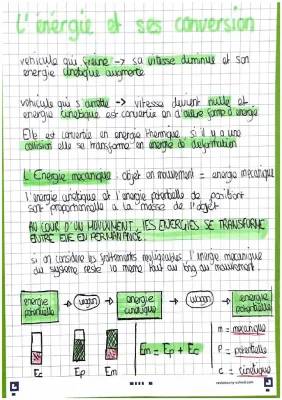 L'énergie et ses conversion
vehicule qui freine -> sa vitesse diminue et son
energie cinétique augmente
vehicule qui s'arrête -> vitesse devient nulle et
énergie cinétique est convertie en d'autre forme d'énergie
Elle est convertie en énergie thermique, si il y a une
collision elle se transforme en énergie de déformation
L'Énergie mécanique : objet en mouvement = énergie mécanique
l'énergie cinétique et l'énergie potentielle de position
sont proportionnelle a la masse de l'objet
AU COUR D'UN MOUVEMENT, LES ENERGIES SE TRANSFORME
ENTRE ELLE EN PERMANENCE.
si on considère les frottements négligeables, l'énergie mecanique
du système reste la meme tout au long du mouvement
énergie potentielle -> wagon -> énergie cinétique -> wagon -> énergie potentielle
Ec Ep Ec Ep
Em = Ep + Ec
m = mecanique
p = potentielle
c = cinétique